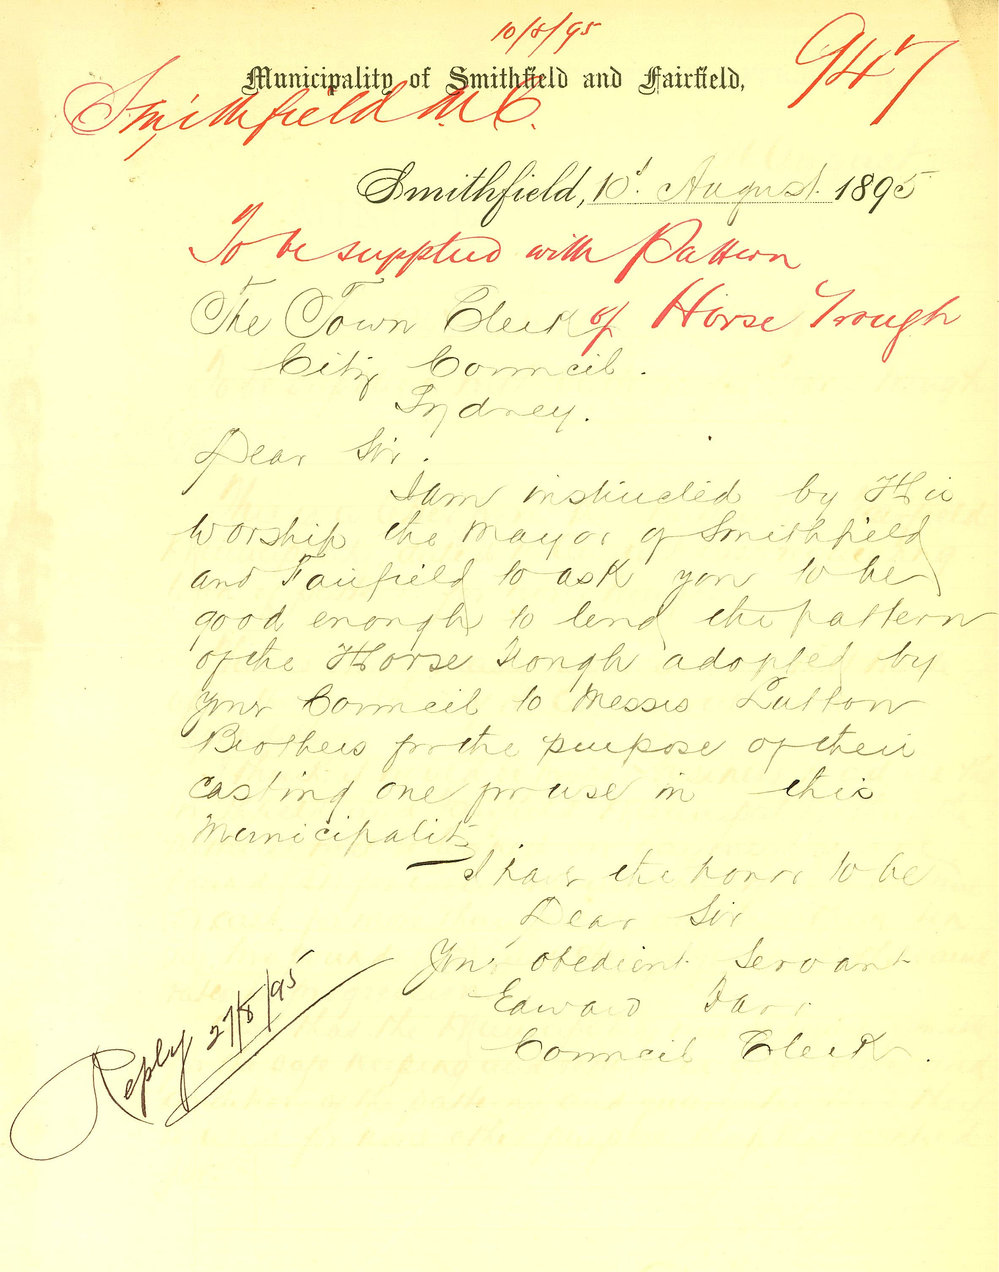 10/8/95
947
Municipality of Smithfield and Fairfield,
Smithfield M.C.
Smithfield, 10th August 1895
To be supplied with Pattern
of Horse Trough
The Town Clerk
City Council.
Sydney.
Dear Sir.
I am instructed by His
Worship the Mayor of Smithfield
and Fairfield to ask you to be
good enough to lend the pattern
of the Horse Trough adopted by
your Council to Messrs
Brothers for the purpose of their
casting one for use in this
Municipality
I have the honor to be
Dear Sir
Your obedient Servant
Edward
Council Clerk.
Reply 27/8/95